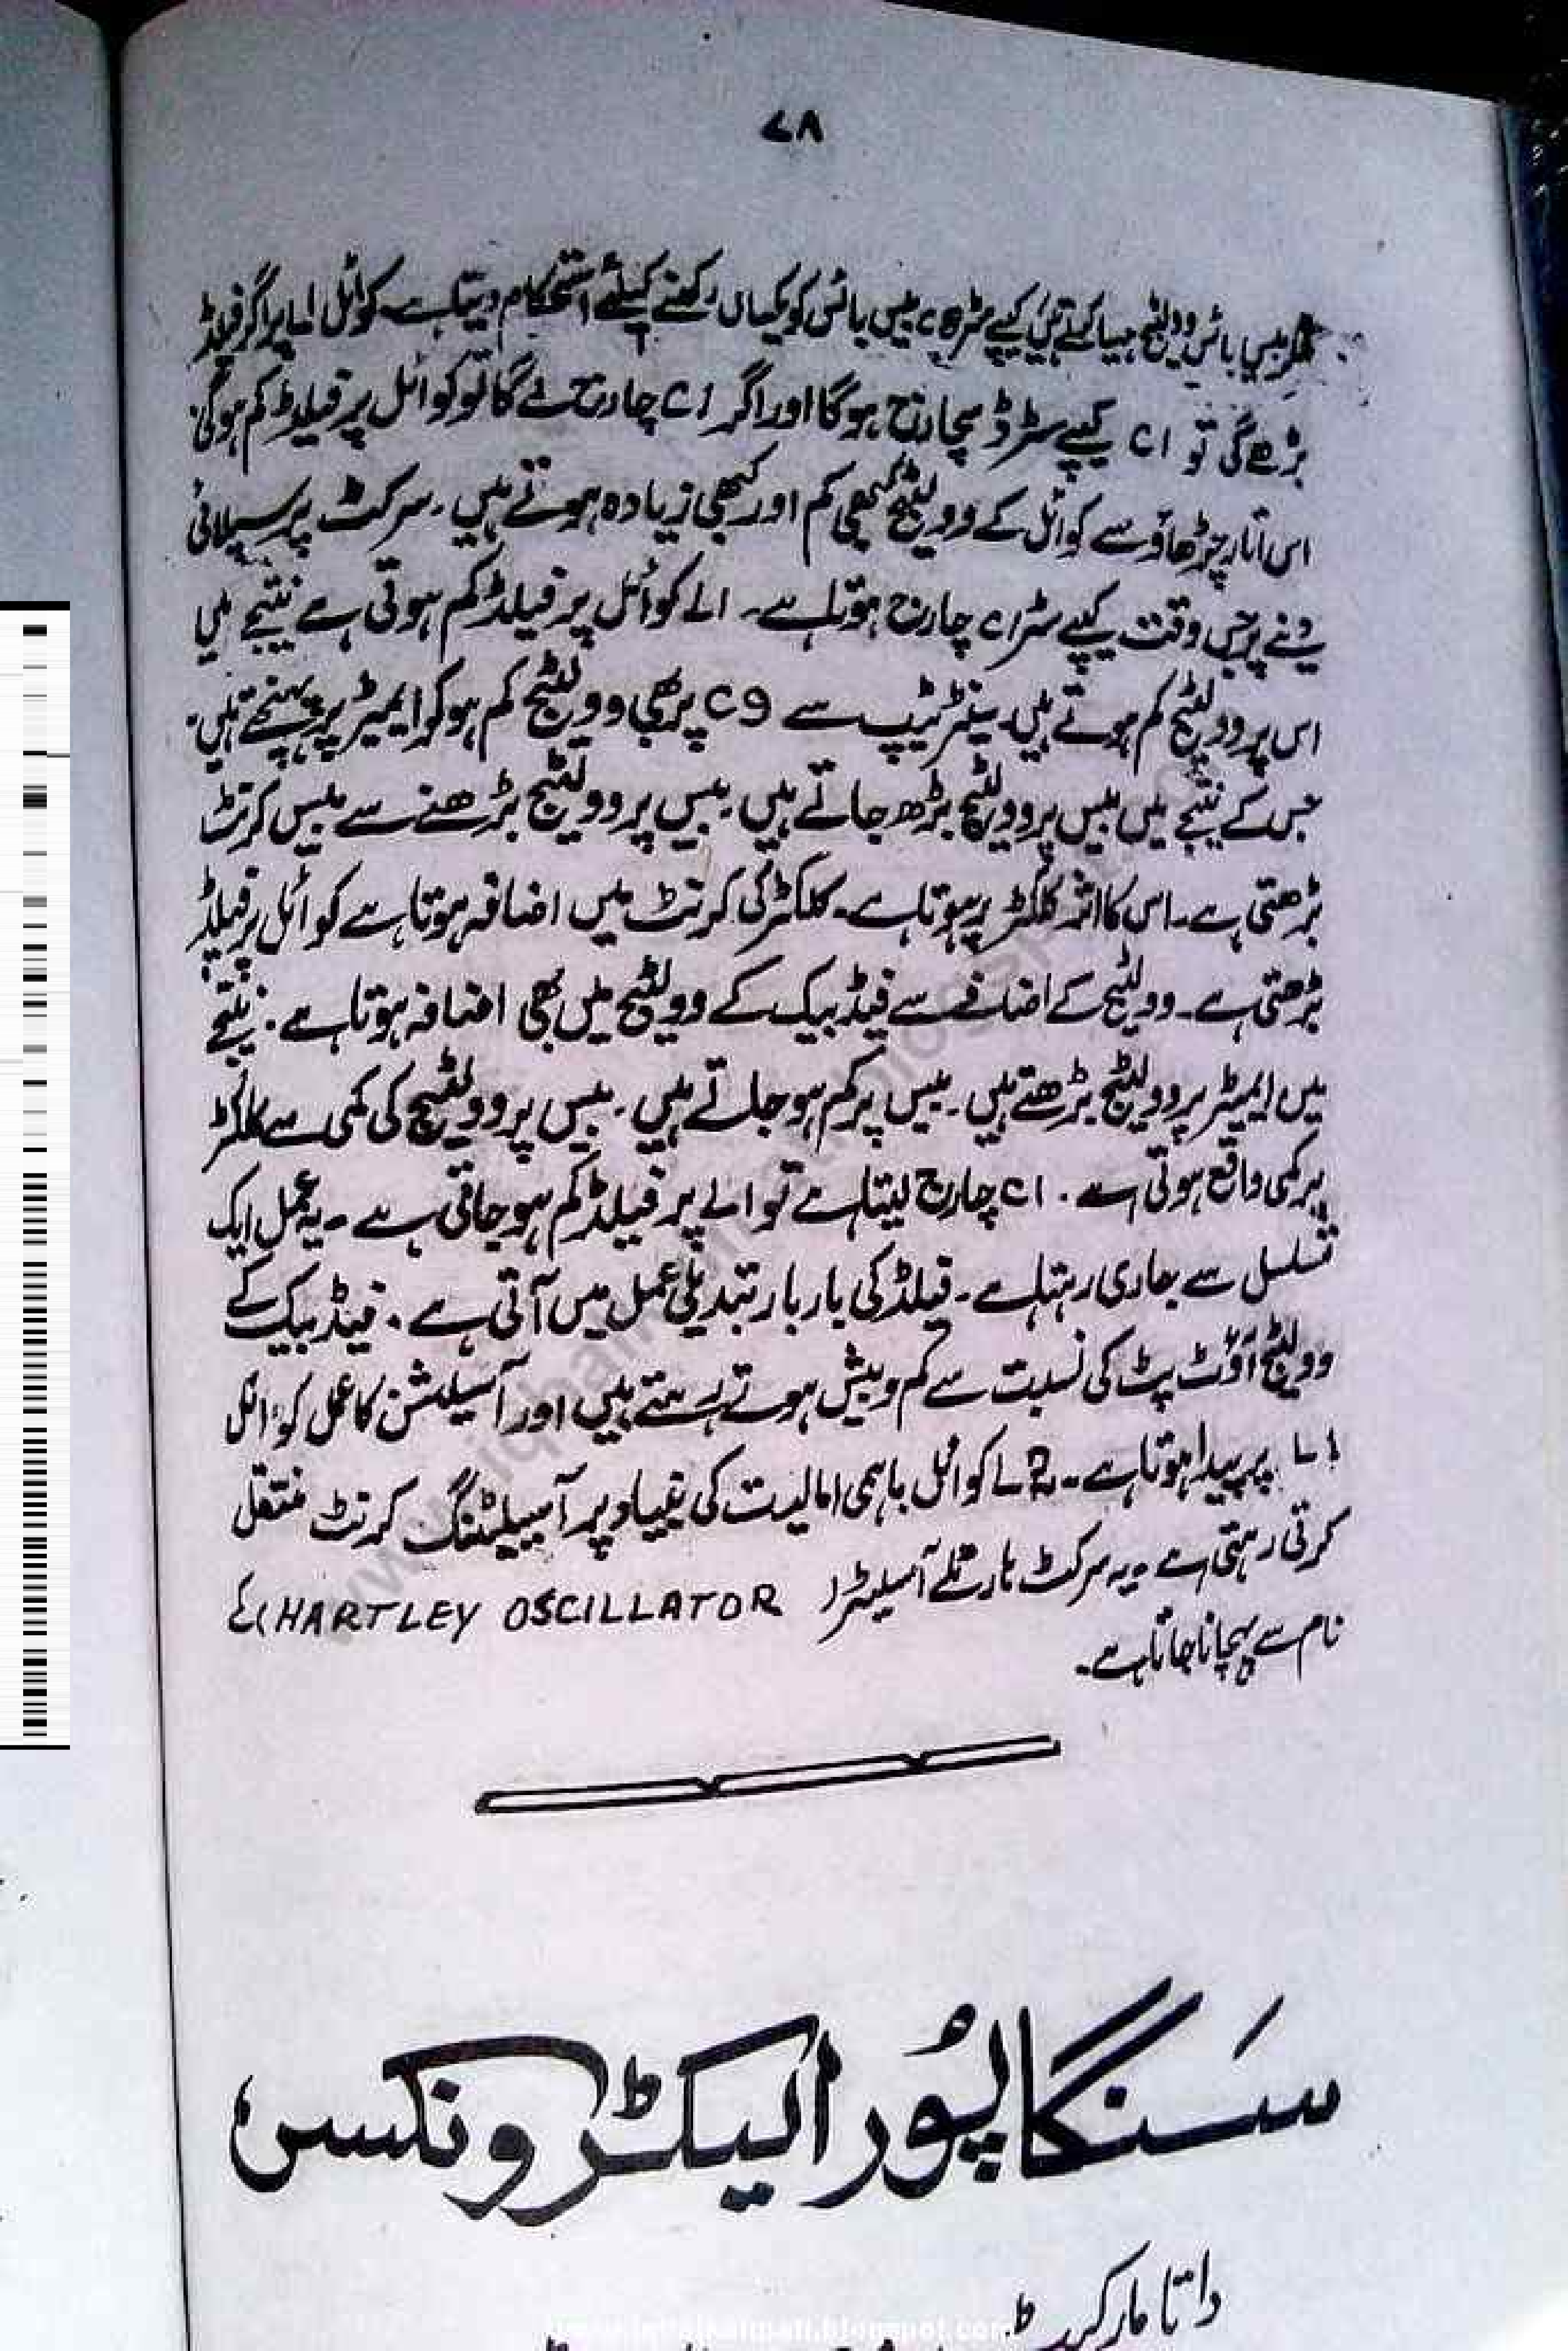 ۷۸
کر بیس بائس وولٹیج مہیا کرتے ہیں کیپے سٹر c8 بیس بائس کو یکساں رکھنے کیلئے استحکام دیتا ہے۔ کوائل L1 پر اگر فیلڈ
بڑھے گی تو c1 کیپے سٹر ڈسچارج ہوگا اور اگر c1 چارج لے گا تو کوائل پر فیلڈ کم ہوگی۔
اس اتار چڑھاؤ سے کوائل کے وولٹیج کبھی کم اور کبھی زیادہ ہوتے ہیں۔ سرکٹ پر سپلائی
دینے پر جس وقت کیپے سٹر c1 چارج ہوتا ہے۔ L1 کوائل پر فیلڈ کم ہوتی ہے نتیجے میں
اس پر وولٹیج کم ہوتے ہیں۔ سینٹر ٹیپ سے c9 پر بھی وولٹیج کم ہو کر ایمیٹر پر پہنچتے ہیں۔
جس کے نتیجے میں بیس پر وولٹیج بڑھ جاتے ہیں۔ بیس پر وولٹیج بڑھنے سے بیس کرنٹ
بڑھتی ہے۔ اس کا اثر کلکٹر پر ہوتا ہے۔ کلکٹر کی کرنٹ میں اضافہ ہوتا ہے کوائل پر فیلڈ
بڑھتی ہے۔ وولٹیج کے اضافے سے فیڈ بیک کے وولٹیج میں بھی اضافہ ہوتا ہے۔ نتیجے
میں ایمیٹر پر وولٹیج بڑھتے ہیں۔ بیس پر کم ہو جاتے ہیں۔ بیس پر وولٹیج کی کمی سے کلکٹر
پر کمی واقع ہوتی ہے۔ c1 چارج لیتا ہے تو L1 پر فیلڈ کم ہو جاتی ہے۔ یہ عمل ایک
تسلسل سے جاری رہتا ہے۔ فیلڈ کی بار بار تبدیلی عمل میں آتی ہے۔ فیڈ بیک کے
وولٹیج آؤٹ پٹ کی نسبت سے کم و بیش ہوتے رہتے ہیں اور آسیلیشن کا عمل کوائل
L1 پر پیدا ہوتا ہے۔ L2 کوائل باہمی امالیت کی بنیاد پر آسیلیٹنگ کرنٹ منتقل
کرتی رہتی ہے۔ یہ سرکٹ ہارٹلے آسیلیٹر (HARTLEY OSCILLATOR) کے
نام سے پہچانا جاتا ہے۔
سنگاپُور الیکٹرونکس
داتا مارکیٹ